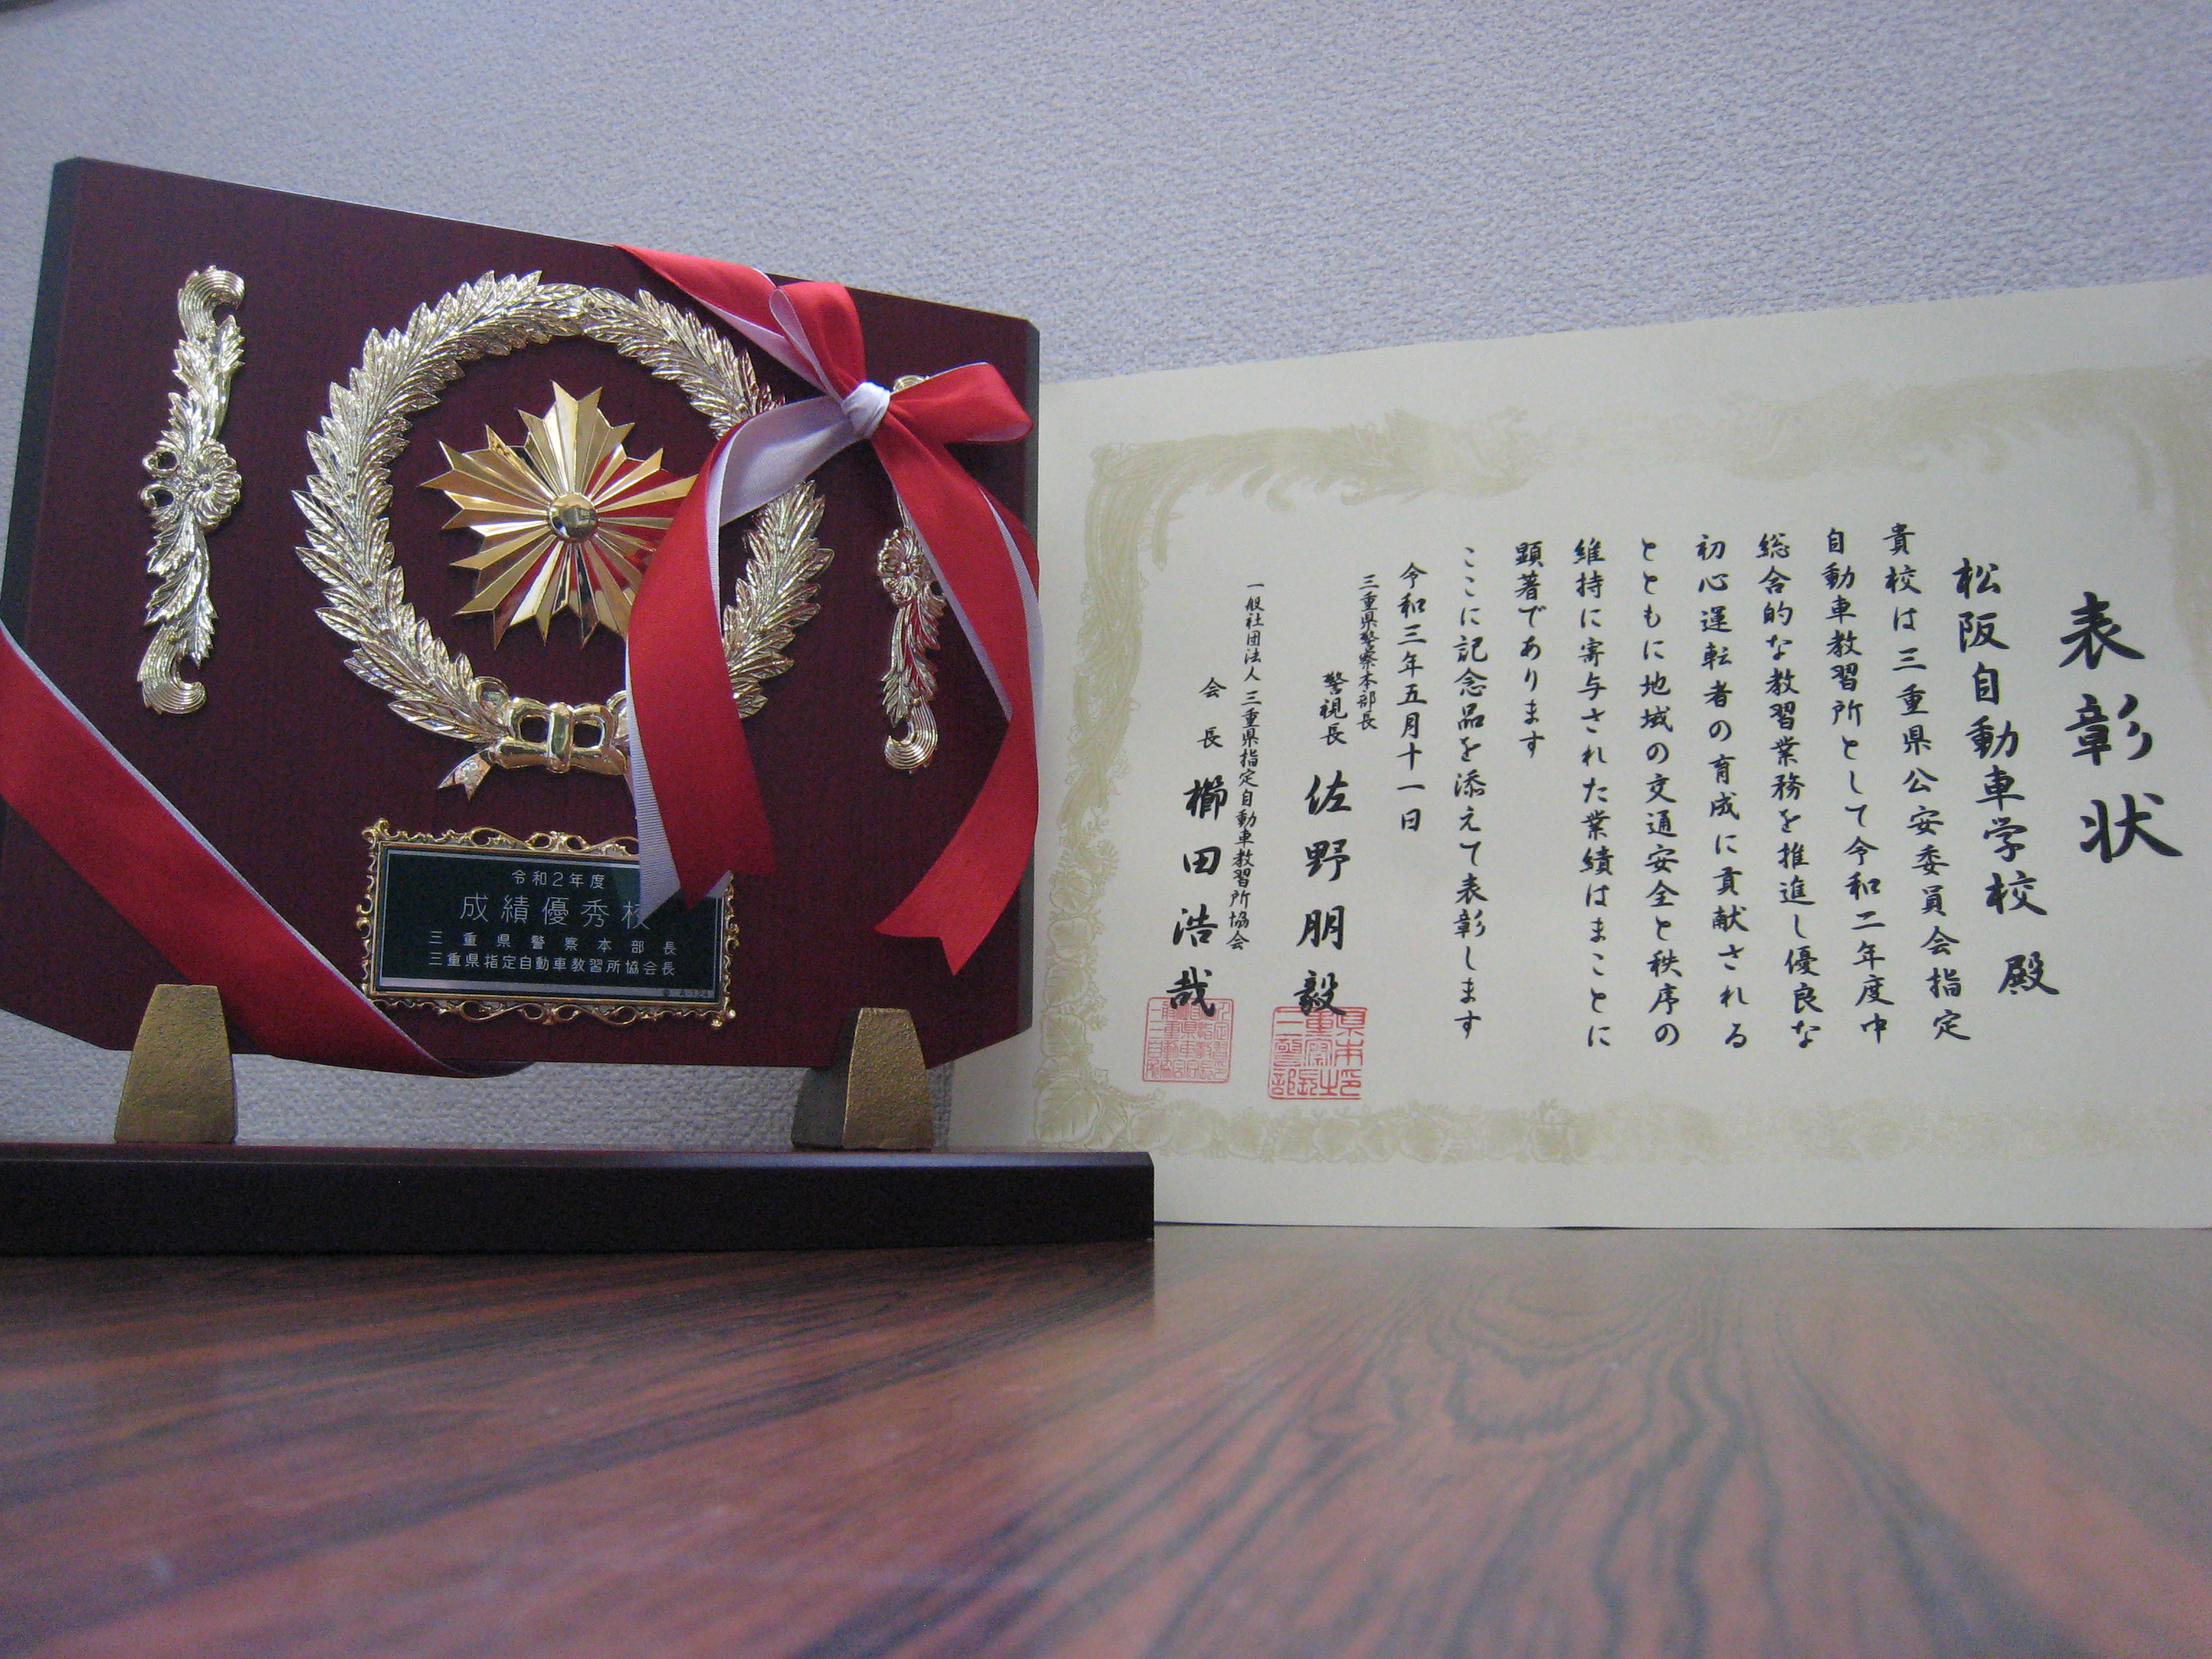 令和2年度
成績優秀校
三重県警察本部長
三重県指定自動車教習所協会長
表彰状
松阪自動車学校 殿
貴校は三重県公安委員会指定
自動車教習所として令和二年度中
総合的な教習業務を推進し優良な
初心運転者の育成に貢献される
とともに地域の交通安全と秩序の
維持に寄与された業績はまことに
顕著であります
ここに記念品を添えて表彰します
令和三年五月十一日
三重県警察本部長
警視長 佐野朋毅
一般社団法人 三重県指定自動車教習所協会
会長 櫛田浩哉